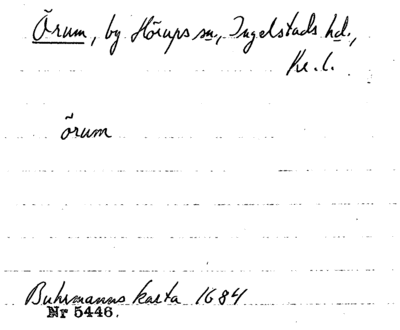 Õrum, by Hörups sn, Ingelstads hd.,
Kr. l.
õrum
Buhrmanns karta 1684
Nr 5446.